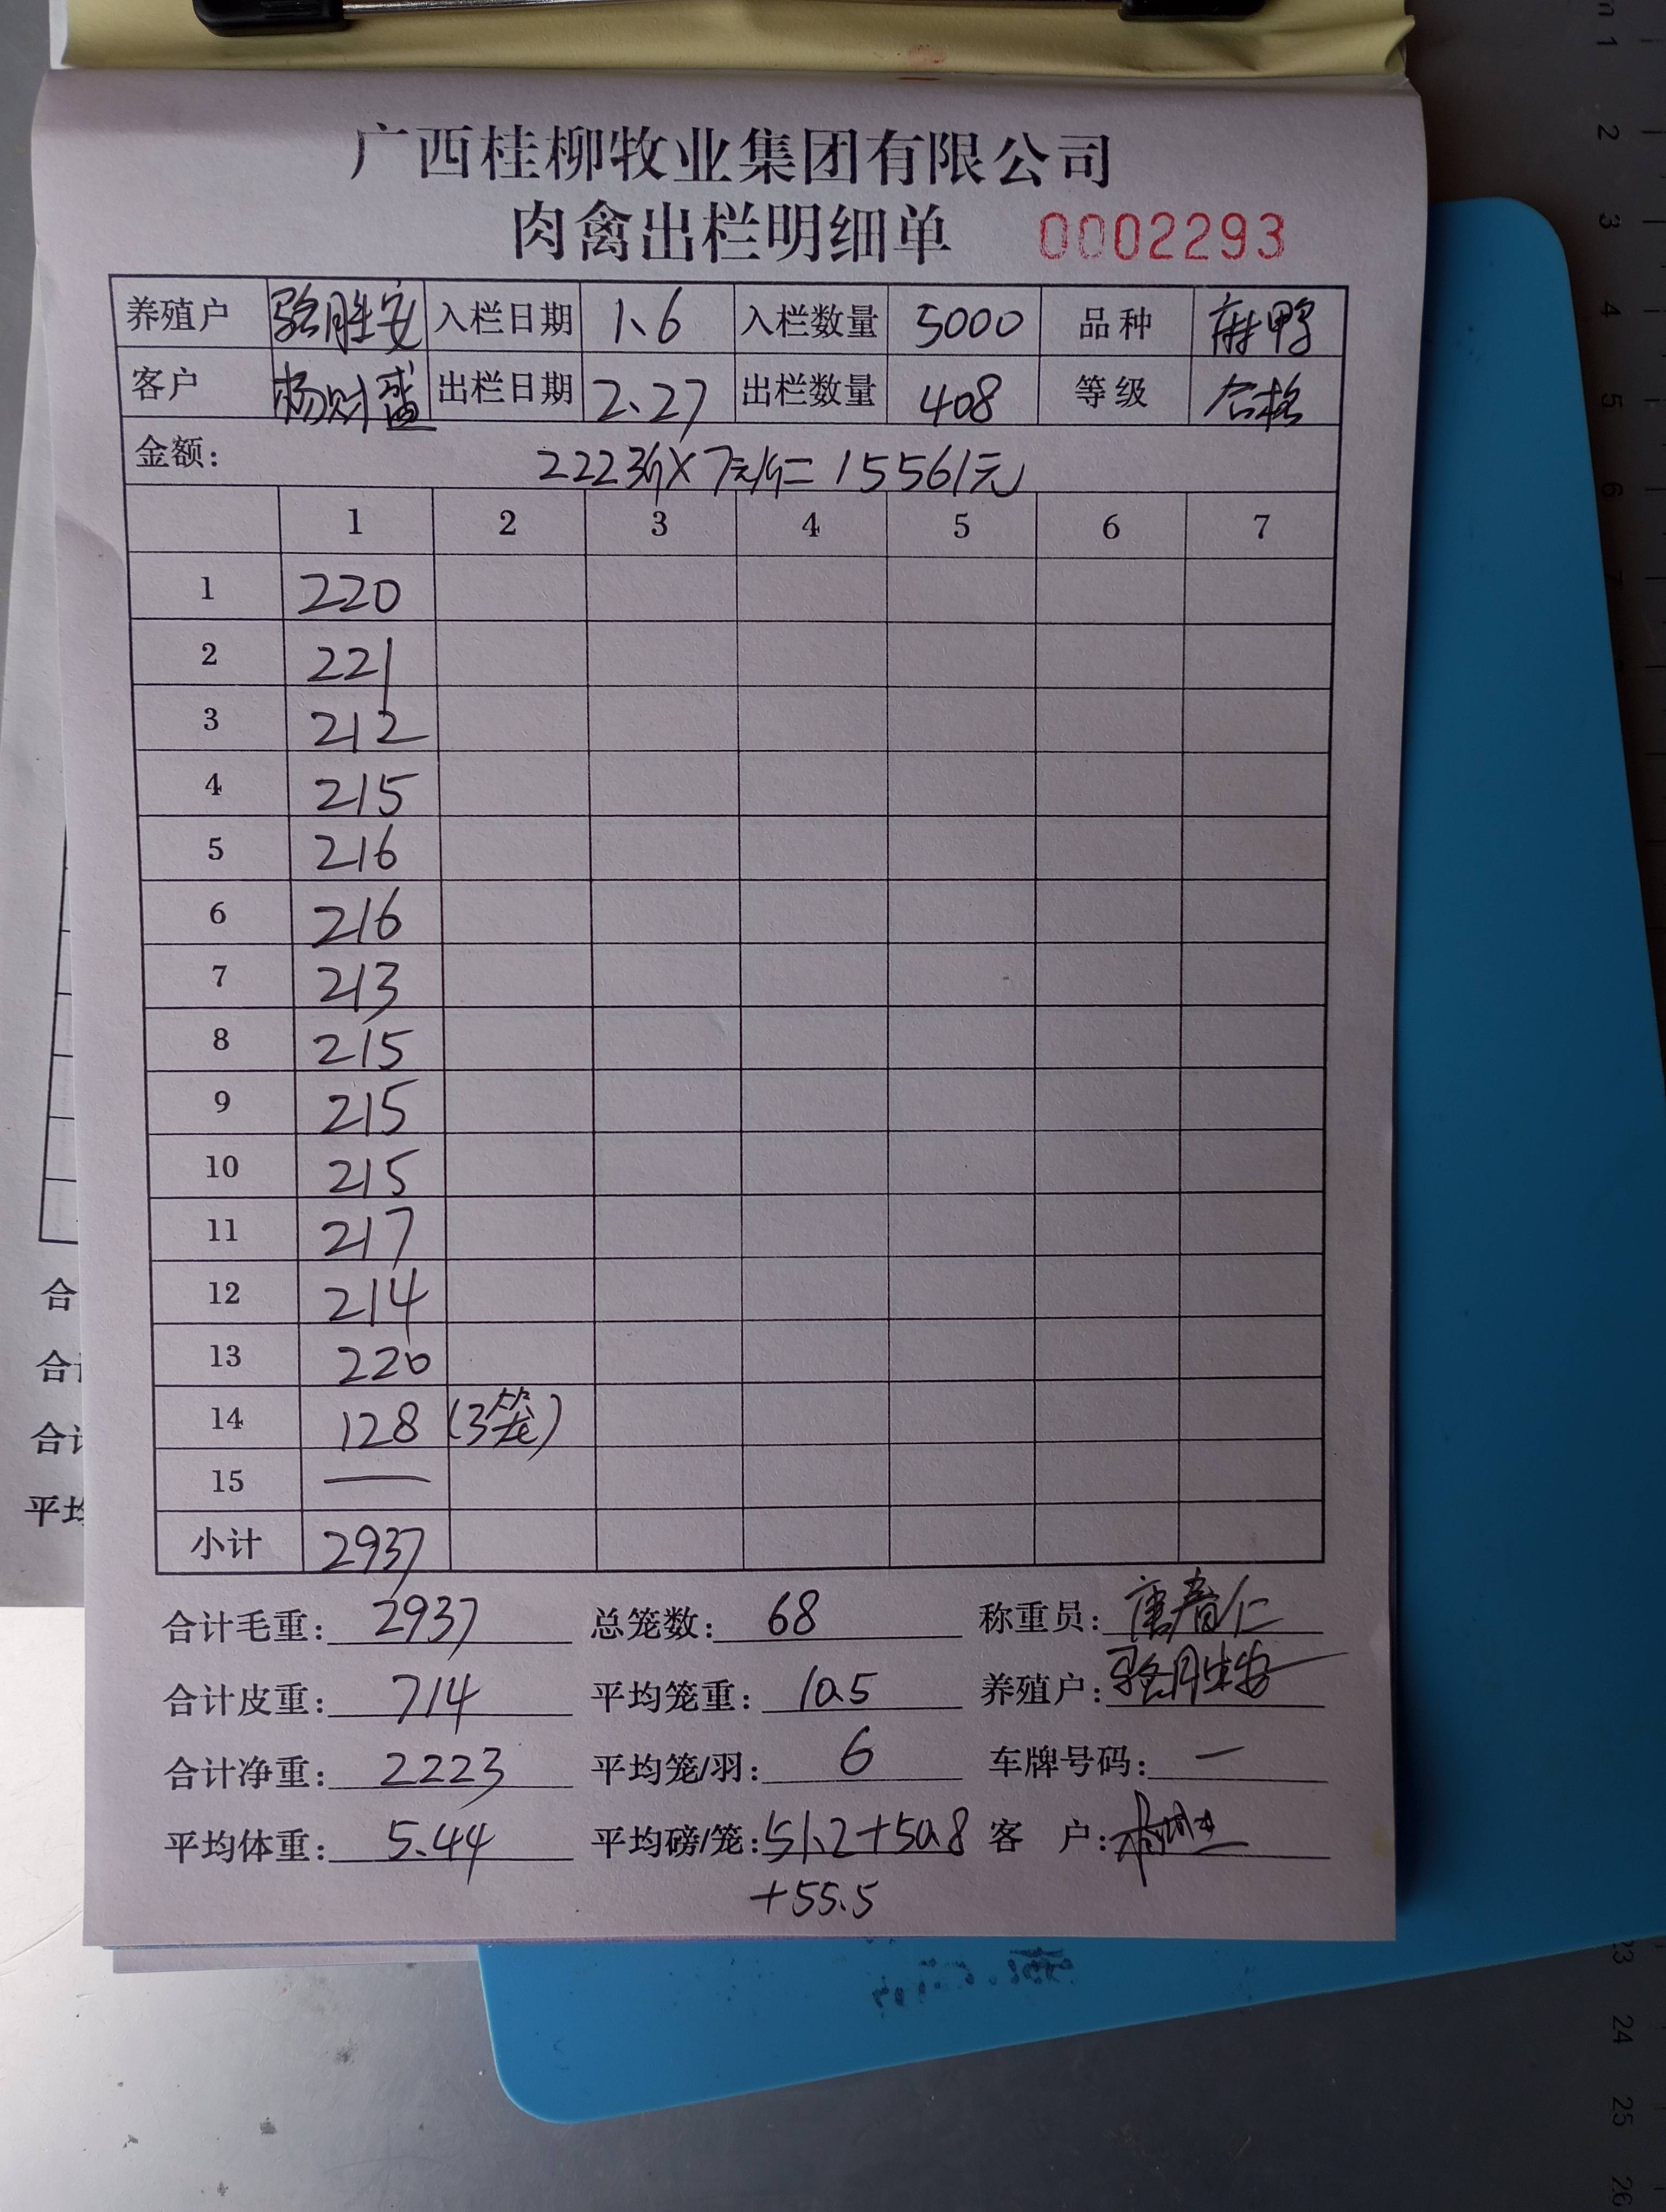 广西桂柳牧业集团有限公司
肉禽出栏明细单 0002293
养殖户 骆胜安 入栏日期 1、6 入栏数量 5000 品种 麻鸭
客户 杨财盛 出栏日期 2、27 出栏数量 408 等级 合格
金额: 2223斤×7元/斤=15561元
1 2 3 4 5 6 7
1 220
2 221
3 212
4 215
5 216
6 216
7 213
8 215
9 215
10 215
11 217
12 214
13 220
14 128 (3笼)
15 —
小计 2937
合计毛重: 2937 总笼数: 68 称重员: 唐春仁
合计皮重: 714 平均笼重: 10.5 养殖户: 骆胜安
合计净重: 2223 平均笼/羽: 6 车牌号码: —
平均体重: 5.44 平均磅/笼: 51.2+50.8 客 户:
+55.5
合
合计
合计
平均
1
2
3
4
5
6
7
23
24
25
26